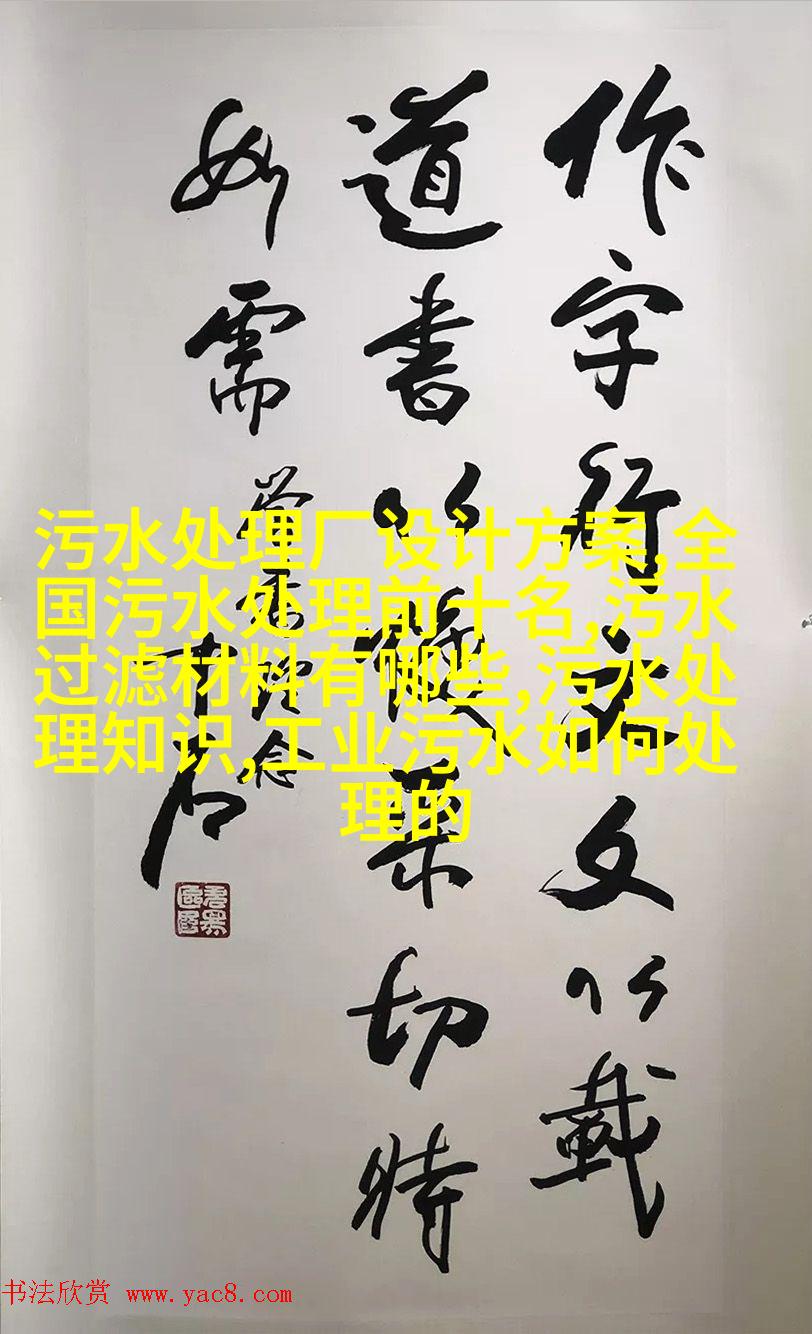 作字行文文以載
道書以煥采切時
如需
學書理念
中石
污水处理厂设计方案,全
国污水处理前十名,污水
过滤材料有哪些,污水处
理知识,工业污水如何处
理的
书法欣赏 www.yac8.com